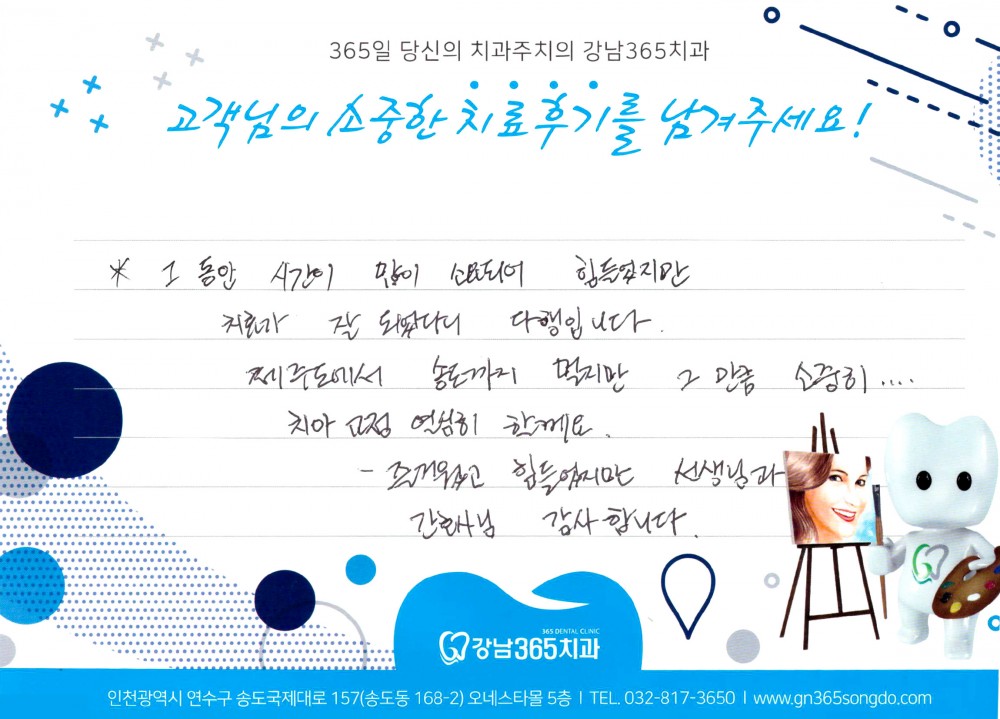 365일 당신의 치과주치의 강남365치과
고객님의 소중한 치료후기를 남겨주세요!
* 그 동안 시간이 많이 소요되어 힘들었지만
치료가 잘 되었다니 다행입니다.
제주도에서 송도까지 멀지만 그 만큼 소중히....
치아 교정 열심히 할께요.
- 즐거웠고 힘들었지만 선생님과
간호사님 감사합니다.
365 DENTAL CLINIC
강남365치과
인천광역시 연수구 송도국제대로 157(송도동 168-2) 오네스타몰 5층 | TEL. 032-817-3650 | www.gn365songdo.com